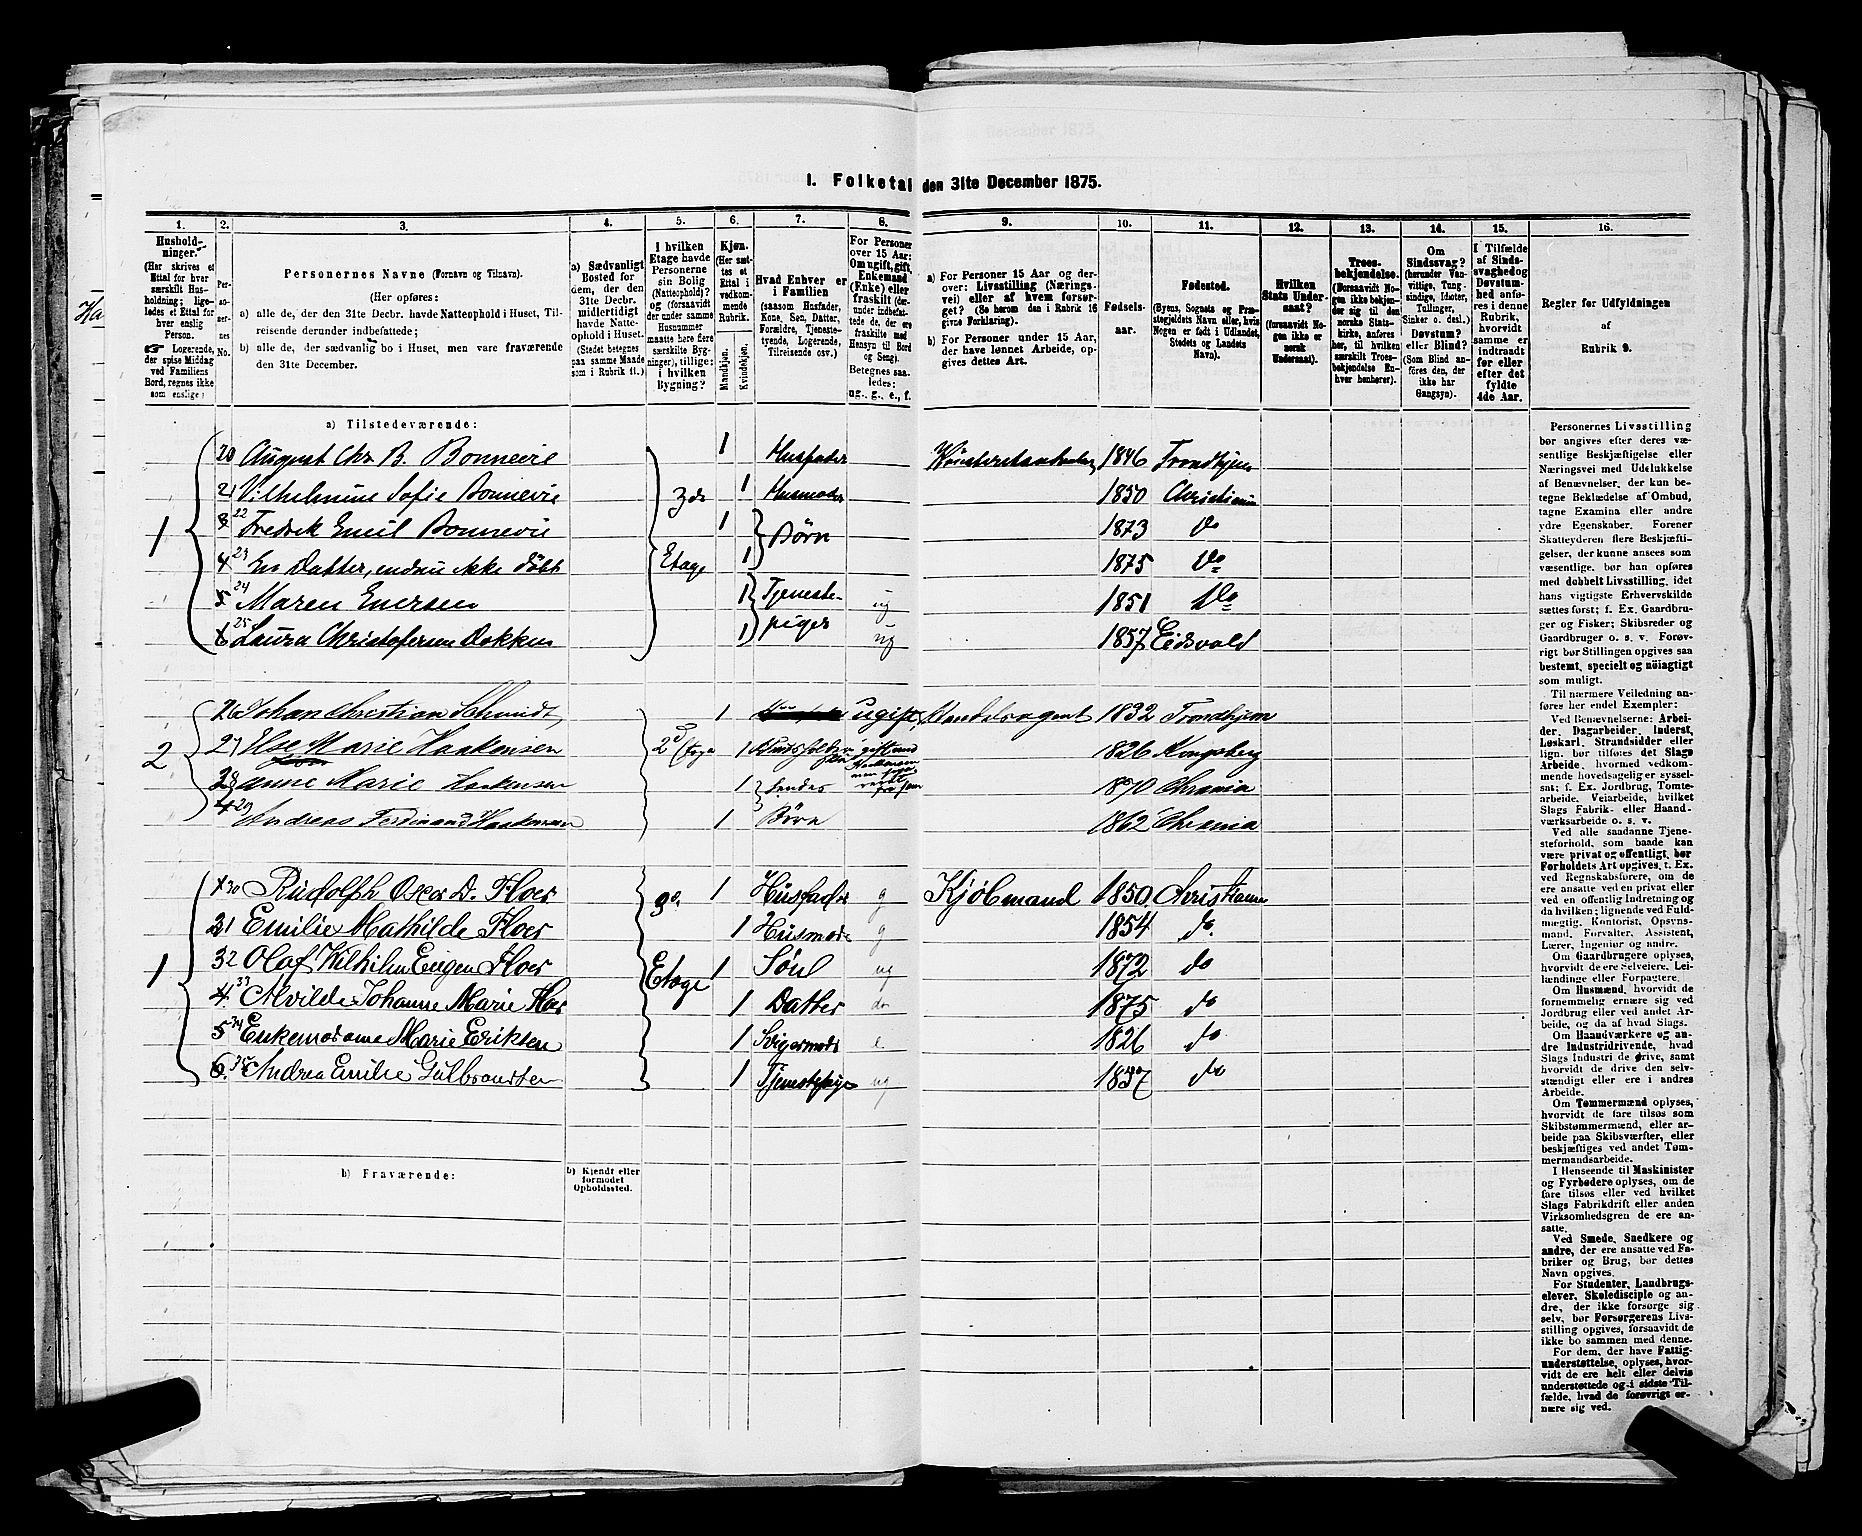 I. Folketal den 31te December 1875.
1. 2. 3. 4. 5. 6. 7. 8. 9. 10. 11. 12. 13. 14. 15. 16.
Husholdninger.
(Her skrives et Ettal for hver særskilt Husholdning; ligeledes et Ettal for hver enslig Person.
☞ Logerende, der spise Middag ved Familiens Bord, regnes ikke som enslige)
Personernes No.
Personernes Navne (Fornavn og Tilnavn).
(Her opføres:
a) alle de, der den 31te Decbr. havde Natteophold i Huset, Tilreisende derunder indbefattede;
b) alle de, der sædvanlig bo i Huset, men vare fraværende den 31te December.
a) Sædvanligt Bosted for dem, der den 31te Decbr. midlertidigt havde Natteophold i Huset.
(Stedet betegnes paa samme Maade som i Rubrik 11.)
I hvilken Etage havde Personerne sin Bolig (Natteophold)? og (forsaavidt der under samme Husnummer maatte høre flere særskilte Bygninger), tillige: i hvilken Bygning?
Kjøn.
(Her sættes et Ettal i vedkommende Rubrik.
Mandkjøn. Kvindekjøn.
Hvad Enhver er i Familien
(saasom Husfader, Kone, Søn, Datter, Forældre, Tjenestetyende, Logerende, Tilreisende osv.)
For Personer over 15 Aar: Om ugift, gift, Enkemand (Enke) eller fraskilt (derunder indbefattede de, der ere fraskilte med Hensyn til Bord og Seng).
Betegnes saaledes:
ug., g., e., f.
a) For Personer 15 Aar og derover: Livsstilling (Næringsvei) eller af hvem forsørget? (Se herom den i Rubrik 16 givne Forklaring).
b) For Personer under 15 Aar, der have lønnet Arbeide, opgives dettes Art.
Fødselsaar.
Fødested.
(Byens, Sognets og Præstegjeldets Navn eller, hvis Nogen er født i Udlandet, Stedets og Landets Navn).
Hvilken Stats Undersaat?
(forsaavidt Nogen ikke er norsk Undersaat).
Troesbekjendelse.
(Forsaavidt Nogen ikke bekjender sig til den norske Statskirke, anføres her, til hvilken særskilt Troesbekjendelse Enhver henhører).
Om Sindssvag? (herunder Vanvittige, Tungsindige, Idioter, Tullinger, Sinker o. desl.) Døvstum? eller Blind?
(Som Blind anføres den, der ikke har Gangsyn).
I Tilfælde af Sindssvaghed og Døvstumhed anføres i denne Rubrik, hvorvidt samme er indtraadt før eller efter det fyldte 4de Aar.
Regler for Udfyldningen
af
Rubrik 9.
a) Tilstedeværende:
1 20 August Chr. B. Bonnevie 1 Husfader 1846 Trondhjem
21 Vilhelmine Sofie Bonnevie 3de 1 Husmoder 1850 Christiania
22 Fredrik Emil Bonnevie 1 Børn 1873 Do
4 23 En Datter, endnu ikke døbt Etage 1 1875 Do
5 24 Maren Enersen 1 Tjeneste- ug 1851 Do
6 25 Laura Christofersen Dokken 1 piger ug 1857 Eidsvold
2 26 Johan Christian Schmidt, 1 ugift Handelsagent 1832 Trondhjem
27 Else Marie Haakensen 2d Etage 1 1826 Kongsberg
28 Anne Marie Haakensen 1 Hendes 1870 Chrania
4 29 Andreas Ferdinand Haakensen 1 Børn 1862 Chrania
1 30 Rudolph Oscar D. Floer 3de 1 Husfader g Kjøbmand 1850 Christiania
31 Emilie Mathilde Floer 1 Husmode g 1854 do
32 Olaf Wilhilm Eugen Floer Etage 1 Sön ug 1872 do
4 33 Alvilde Johanne Marie Floer 1 Datter do 1875 do
5 34 Enkemadame Marie Eriksen 1 Svigermode e 1826 do
6 35 Andrea Emilie Gulbrandsen 1 Tjenestepige ug 1857 do
b) Fraværende:
b) Kjendt eller formodet Opholdssted.
Personernes Livsstilling
bør angives efter deres væ-
sentlige Beskjæftigelse eller
Næringsvei med Udelukkelse
af Benævnelser, der kun be-
tegne Beklædelse af Ombud,
tagne Examina eller andre
ydre Egenskaber. Forener
Skatteyderen flere Beskjæfti-
gelser, der kunne ansees som
væsentlige, bør han opføres
med dobbelt Livsstilling, idet
hans vigtigste Erhvervskilde
sættes først; f. Ex. Gaardbru-
ger og Fisker; Skibsreder og
Gaardbruger o. s. v. Forøv-
rigt bør Stillingen opgives saa
bestemt, specielt og nöiagtigt
som muligt.
Til nærmere Veiledning an-
føres her endel Exempler:
Ved Benævnelserne: Arbei-
der, Dagarbeider, Inderst,
Løskarl, Strandsidder eller
lign. bør tilføies det Slags
Arbeide, hvormed vedkom-
mende hovedsagelig er syssel-
sat; f. Ex. Jordbrug, Tomte-
arbeide, Veiarbeide, hvilket
Slags Fabrik- eller Haand-
værksarbeide o. s. v.
Ved alle saadanne Tjene-
steforhold, som baade kan
være privat og offentligt, bør
Forholdets Art opgives, t. Ex.
ved Regnskabsførere, om de
ere ansatte ved en privat eller
ved en offentlig Indretning og
da hvilken; lignende ved Fuld-
mægtig, Kontorist, Opsyns-
mand, Forvalter, Assistent,
Lærer, Ingeniør og andre.
Om Gaardbrugere oplyses,
hvorvidt de ere Selveiere, Lei-
lændinge eller Forpagtere.
Om Husmænd, hvorvidt de
fornemmelig ernære sig ved
Jordbrug eller ved andet Ar-
beide, og da af hvad Slags.
Om Haandværkere og an-
dre Industridrivende, hvad
Slags Industri de drive, samt
hvorvidt de drive den selv-
stændigt eller ere i andres
Arbeide.
Om Tømmermænd oplyses,
hvorvidt de fare tilsøs som
Skibstømmermænd, eller ar-
beide paa Skibsværfter, eller
beskjæftiges ved andet Tøm-
mermandsarbeide.
I Henseende til Maskinister
og Fyrbødere oplyses, om de
fare tilsøs eller ved hvilket
Slags Fabrikdrift eller anden
Virksomhedsgren de ere an-
satte.
Ved Smede, Snedkere og
andre, der ere ansatte ved Fa-
briker og Brug, bør dettes
Navn opgives.
For Studenter, Landbrugs-
elever, Skoledisciple og an-
dre, der ikke forsørge sig
selv, bør Forsørgerens Livs-
stilling opgives, forsaavidt de
ikke bo sammen med denne.
For dem, der have Fattig-
understøttelse, oplyses, hvor-
vidt de ere helt eller delvis
understøttede og i sidste Til-
fælde, hvad de forøvrigt er-
nære sig ved.